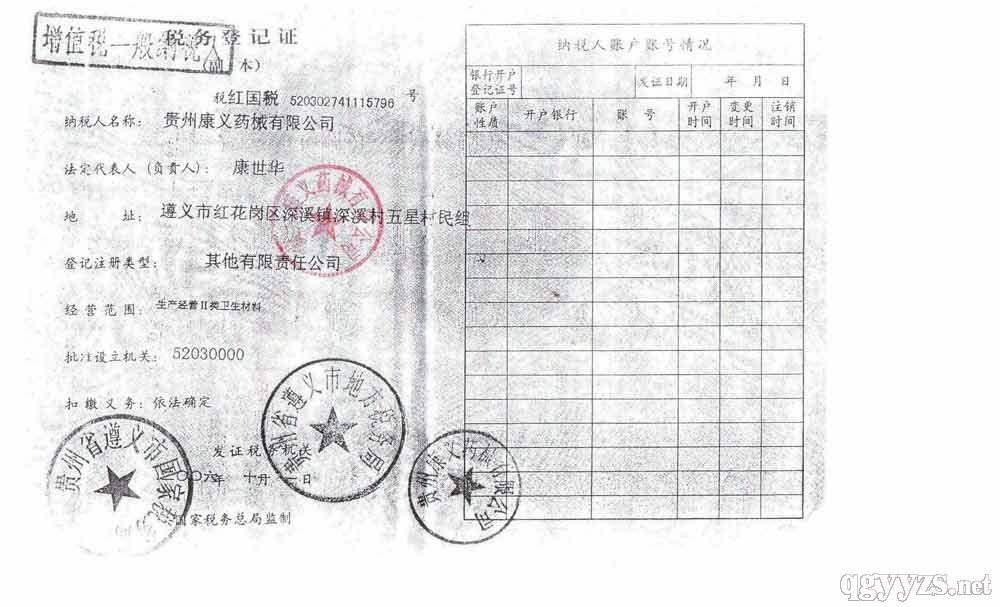 增值税一般纳税人
税务登记证
(副 本)
税红国税 520302741115796 号
纳税人名称: 贵州康义药械有限公司
法定代表人(负责人): 康世华
地 址: 遵义市红花岗区深溪镇深溪村五星村民组
登记注册类型: 其他有限责任公司
经营范围: 生产经营II类卫生材料
批准设立机关: 52030000
扣缴义务: 依法确定
发证税务机关
〇〇六年 十月 日
国家税务总局监制
贵州省遵义市国家税
贵州省遵义市地方税务局
贵州康义药械有限公司
义药械有 公司
纳税人账户账号情况
银行开户登记证号 发证日期 年 月 日
账户性质 开户银行 账 号 开户时间 变更时间 注销时间
qgyyzs.net